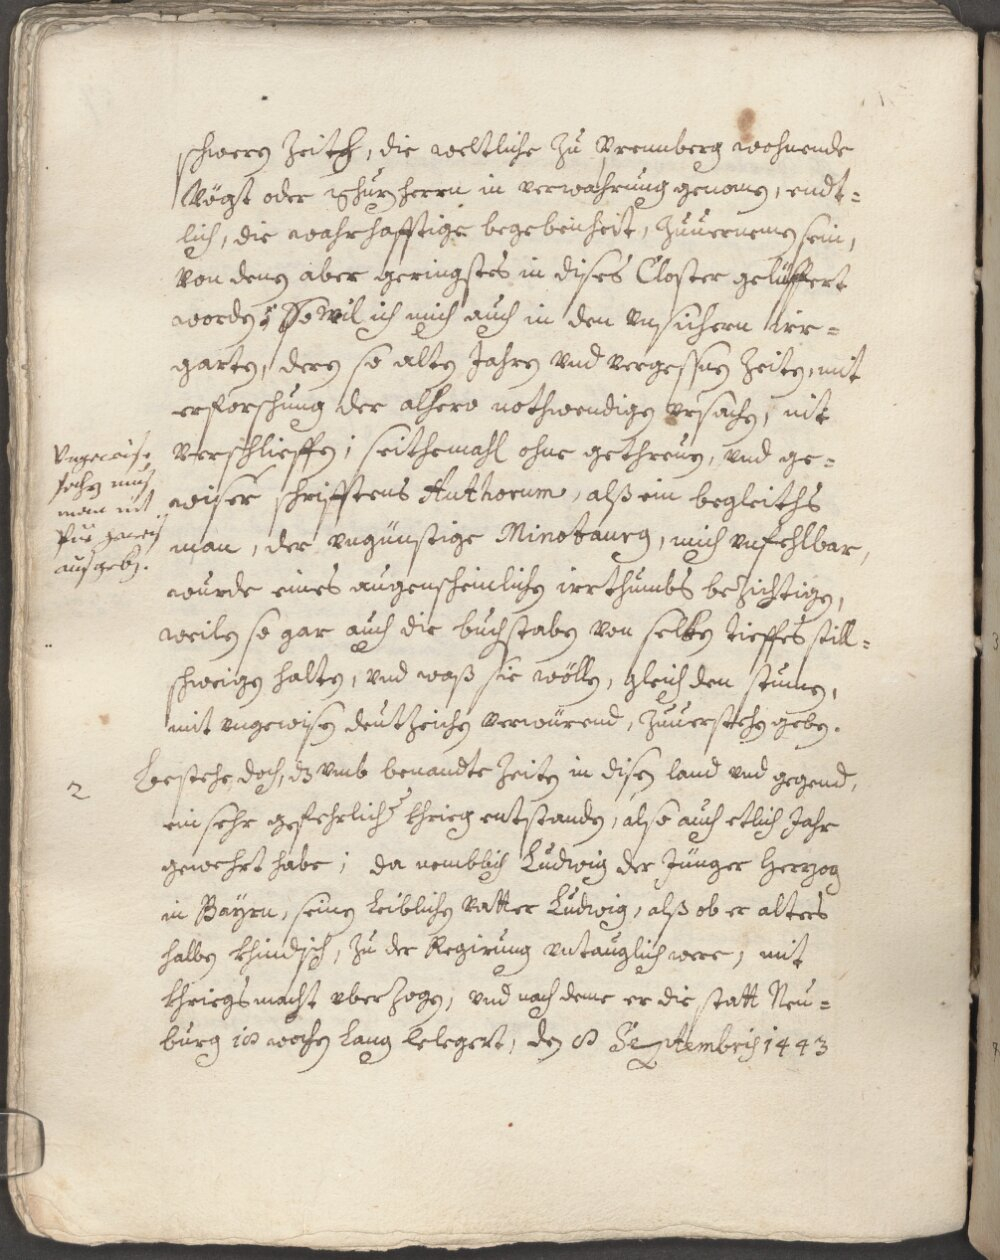 schweren Zeiten, die weltliche zu Prennberg wohnende
Vögt oder Schuzherrn in verwahrung genomen, endt=
lich, die wahrhafftige begebenheit, zuuernemen sein,
von denen aber geringstes in dises Closter gelüffert
worden; So will ich mich auch in den vnsichern irr=
garten, deren so alten Jahren vnd vergessnen Zeiten, mit
erforschung der alhero nothwendigen vrsachen, nit
verschlieffen; seithemahl ohne gethreuen, vnd ge=
wiser schrifftens Authorum, alß ein begleiths
man, der vngünstige Minotaurg, mich vnfehlbar,
wurde eines augenscheinlichen irrthumbs bezichtigen,
weilen so gar auch die buchstaben von selben tieffes still=
schweigen halten, vnd waß sie wöllen, gleich den stumen,
mit vngewisen deutzeichen verwürend, zuuerstehen geben.
Vngewise
sachen mus
man nit
für gewis
ausgeben.
2 Bestehe doch, dz vmb benandte Zeiten in disen land vnd gegend,
ein sehr gefehrlicher khrieg entstanden, also auch etlich Jahr
gewehrt habe; da nemblich Ludwig der Jünger Herzog
in Bayrn, seinen leiblichen vatter Ludwig, alß ob er alters
halben khindisch, zu der Regirung vntauglich were, mit
khriegsmacht vberzogen, vnd nach deme er die statt Neu=
burg 18 wochen lang belegert, den 8 Septembris 1443